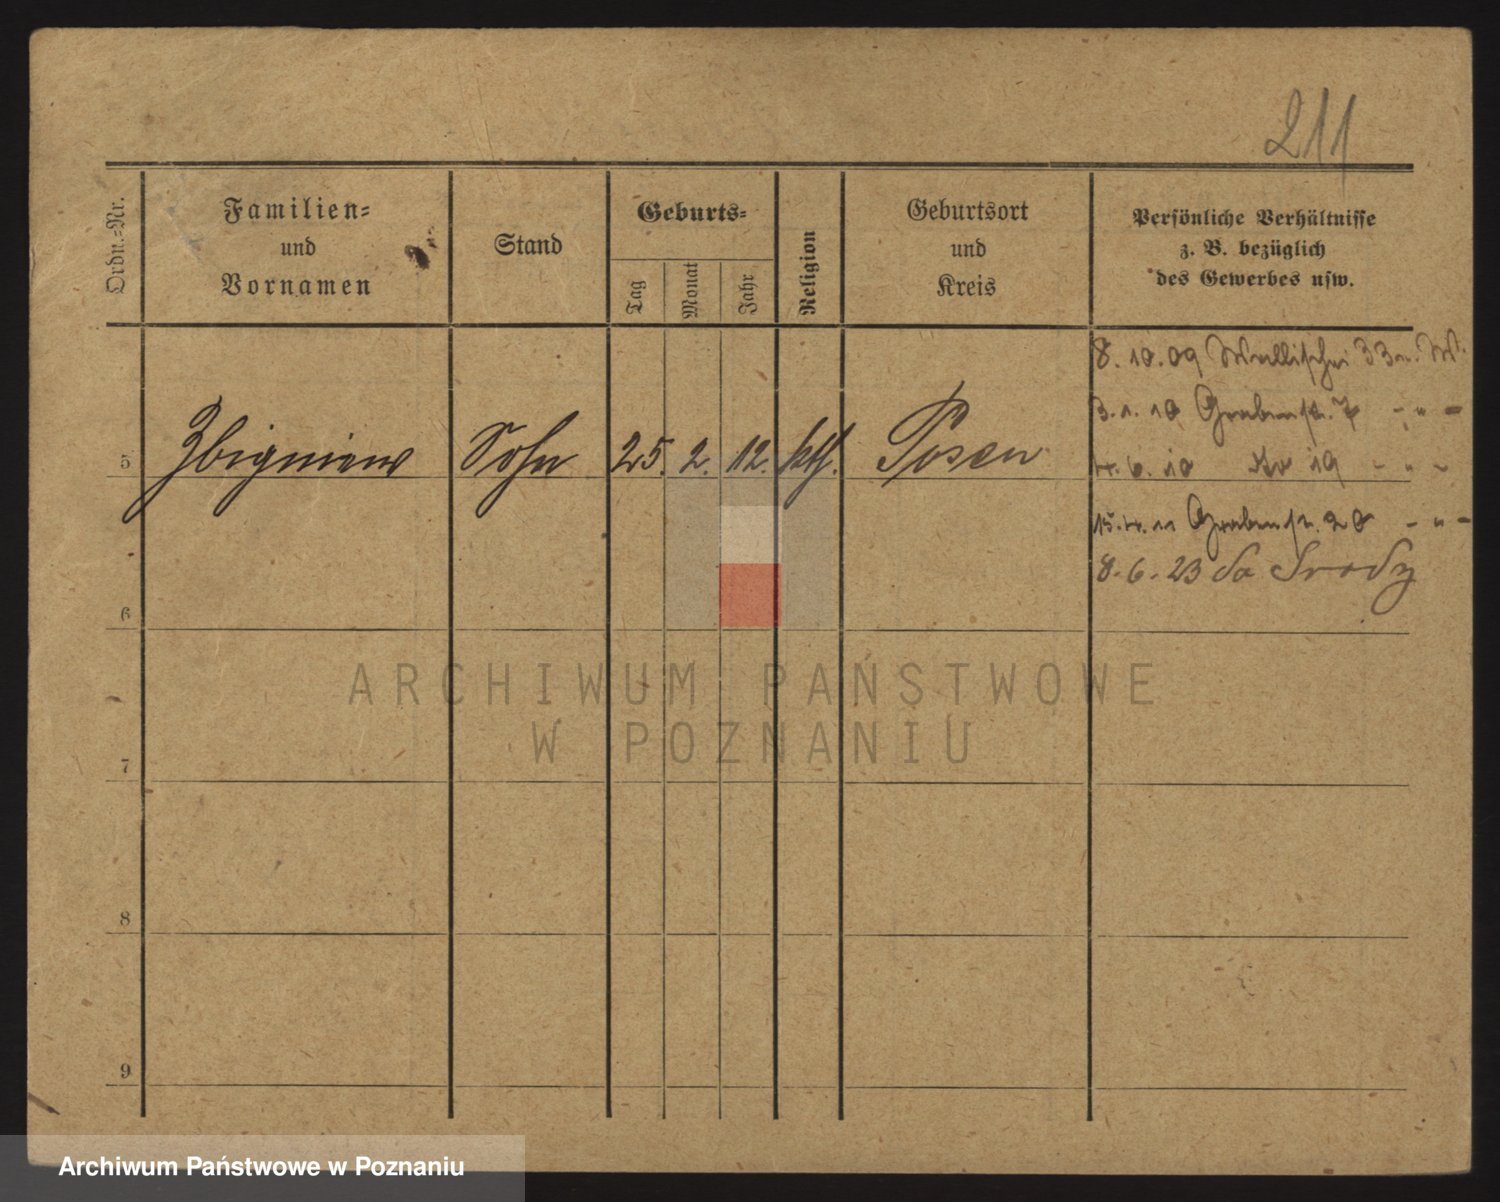 211
Ordn.-Nr.
Familien-
und
Vornamen
Stand
Geburts-
Tag
Monat
Jahr
Religion
Geburtsort
und
Kreis
Persönliche Verhältnisse
z. B. bezüglich
des Gewerbes usw.
8.10.09 Wallischei 33 W.
3.1.10 Grabenstr. 7 - " -
5 Zbigniew Sohn 25. 2. 12. kth. Posen
4.6.10 19 - " -
15.4.11 Grabenstr. 20 - " -
8.6.23 do Środy
6
ARCHIWUM PAŃSTWOWE
W POZNANIU
7
8
9
Archiwum Państwowe w Poznaniu